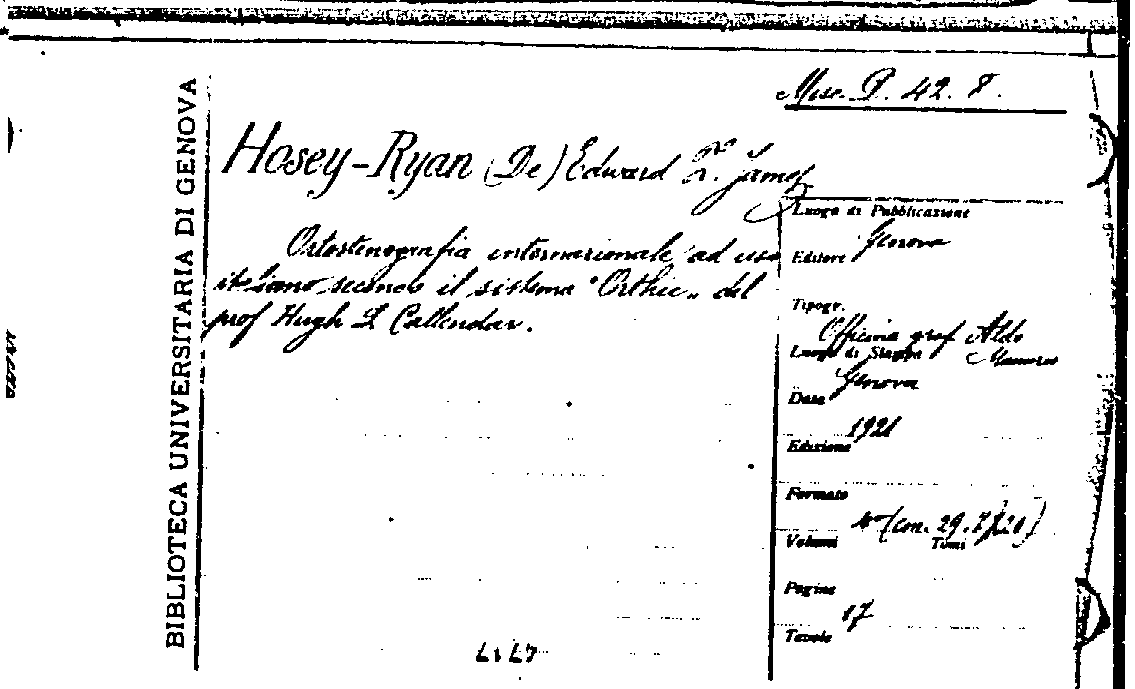 Misc. P. 42. 8.
BIBLIOTECA UNIVERSITARIA DI GENOVA
Hosey-Ryan (De) Edward T. James
Ortostenografia internazionale ad uso
italiano secondo il sistema "Orthic" del
prof Hugh L Callendar.
Luogo di Pubblicazione
Genova
Editore
Tipogr.
Officina graf Aldo
Luogo di Stampa
Genova
Data
1921
Edizione
Formato
(cm. 29.
Volumi Tomi
Pagine
17
Tavole